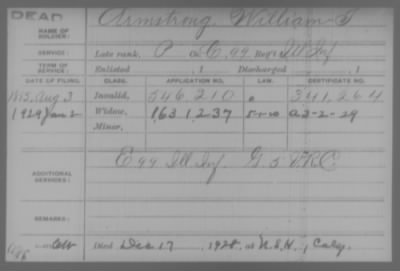 DEAD
NAME OF SOLDIER: Armstrong, William T
SERVICE: Late rank, P Co. C, 99 Reg't Ill Inf
TERM OF SERVICE: Enlisted , 1 Discharged , 1
DATE OF FILING. CLASS. APPLICATION NO. LAW. CERTIFICATE NO.
Aug 3 Invalid, 546,210 341,264
1929 Jan 2 Widow, 1631237 5-1-20 a3-2-29
Minor,
ADDITIONAL SERVICES: E 99 Ill Inf. G 5 VRC
REMARKS:
Died Dec 17, 1928, at N.S.H., Calif.